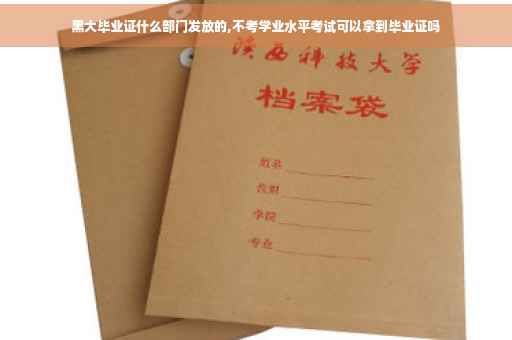 黑大毕业证什么部门发放的,不考学业水平考试可以拿到毕业证吗
陕西科技大学
档案袋
姓名
教职
学院
专业